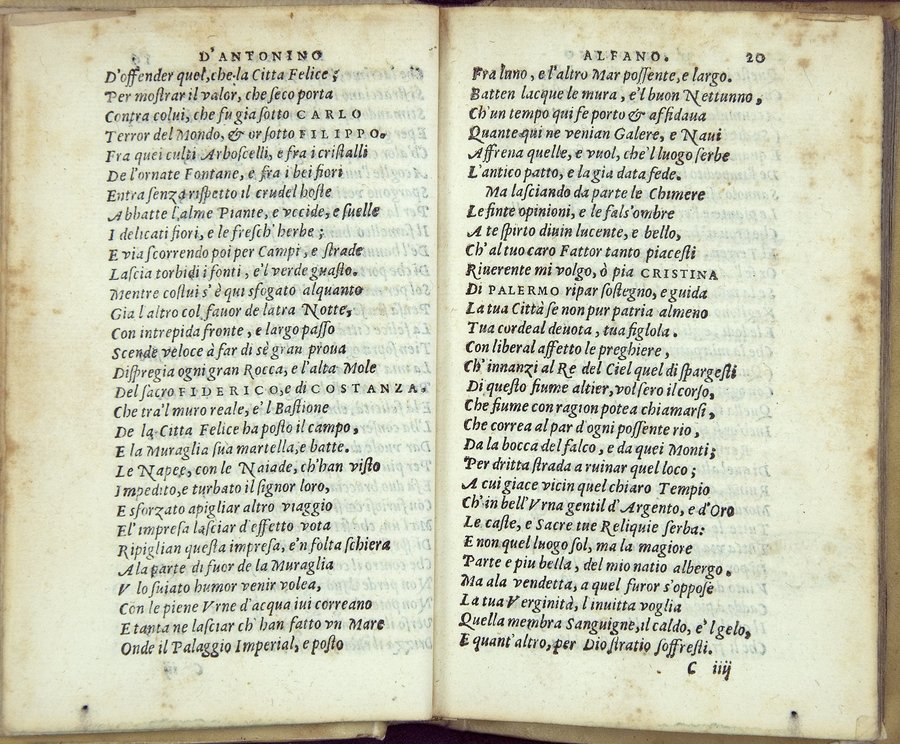 D'ANTONINO
D'offender quel, che la Citta Felice;
Per mostrar il valor, che seco porta
Contra colui, che fu gia sotto CARLO
Terror del Mondo, & or sotto FILIPPO.
Fra quei culti Arboscelli, e fra i cristalli
De l'ornate Fontane, e fra i bei fiori
Entra senza rispetto il crudel hoste
Abbatte l'alme Piante, e vccide, e suelle
I delicati fiori, e le fresch' herbe;
E via scorrendo poi per Campi, e strade
Lascia torbidi i fonti, e'l verde guasto.
Mentre costui s'è qui sfogato alquanto
Gia l'altro col fauor de latra Notte,
Con intrepida fronte, e largo passo
Scende veloce à far di sè gran proua
Dispregia ogni gran Rocca, e l'alta Mole
Del sacro FIDERICO, e di COSTANZA.
Che tra'l muro reale, e'l Bastione
De la Citta Felice ha posto il campo,
E la Muraglia sua martella, e batte.
Le Napee, con le Naiade, ch'han visto
Impedito, e turbato il signor loro,
E sforzato apigliar altro viaggio
El'impresa lasciar d'effetto vota
Ripiglian questa impresa, e'n folta schiera
A la parte di fuor de la Muraglia
V lo suiato humor venir volea,
Con le piene Vrne d'acqua iui correano
E tanta ne lasciar ch'han fatto vn Mare
Onde il Palaggio Imperial, e posto
ALFANO. 20
Fra luno, e l'altro Mar possente, e largo.
Batten lacque le mura, e'l buon Nettunno,
Ch'un tempo qui fe porto & assidava
Quante qui ne venian Galere, e Naui
Affrena quelle, e vuol, che'l luogo serbe
L'antico patto, e la gia data fede.
Ma lasciando da parte le Chimere
Le finte opinioni, e le fals'ombre
A te spirto diuin lucente, e bello,
Ch'al tuo caro Fattor tanto piacesti
Riuerente mi volgo, ò pia CRISTINA
Di PALERMO ripar sostegno, e guida
La tua Città se non pur patria almeno
Tua cordeal deuota, tua figlola.
Con liberal affetto le preghiere,
Ch'innanzi al Re del Ciel quel di spargesti
Di questo fiume altier, volsero il corso,
Che fiume con ragion potea chiamarsi,
Che correa al par d'ogni possente rio,
Da la bocca del falco, e da quei Monti;
Per dritta strada a ruinar quel loco;
A cui giace vicin quel chiaro Tempio
Ch'in bell'Vrna gentil d'Argento, e d'Oro
Le caste, e Sacre tue Reliquie serba:
E non quel luogo sol, ma la magiore
Parte e piu bella, del mio natio albergo.
Ma ala vendetta, a quel furor s'oppose
La tua Verginità, l'inuitta voglia
Quella membra Sanguigne, il caldo, e'l gelo,
E quant'altro, per Dio stratio soffresti.
C iiij